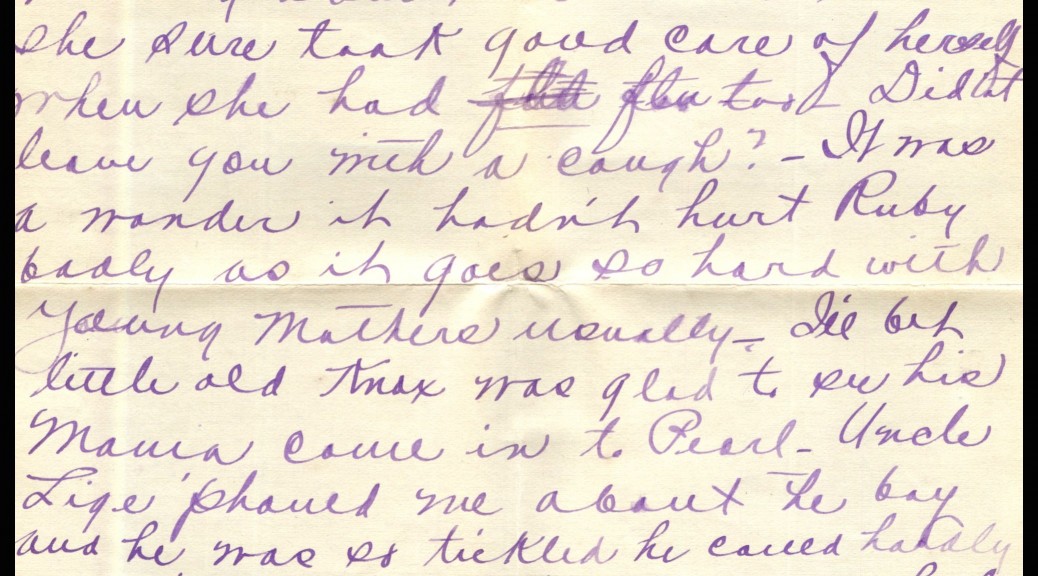 she sure took good care of herself
when she had flu too? Did it
leave you with a cough? - It was
a wonder it hadn't hurt Ruby
badly as it goes so hard with
young Mothers usually - I'll bet
little old Knox was glad to see his
Mama come in to Pearl - Uncle
Lige 'phoned me about the boy
and he was so tickled he could hardly